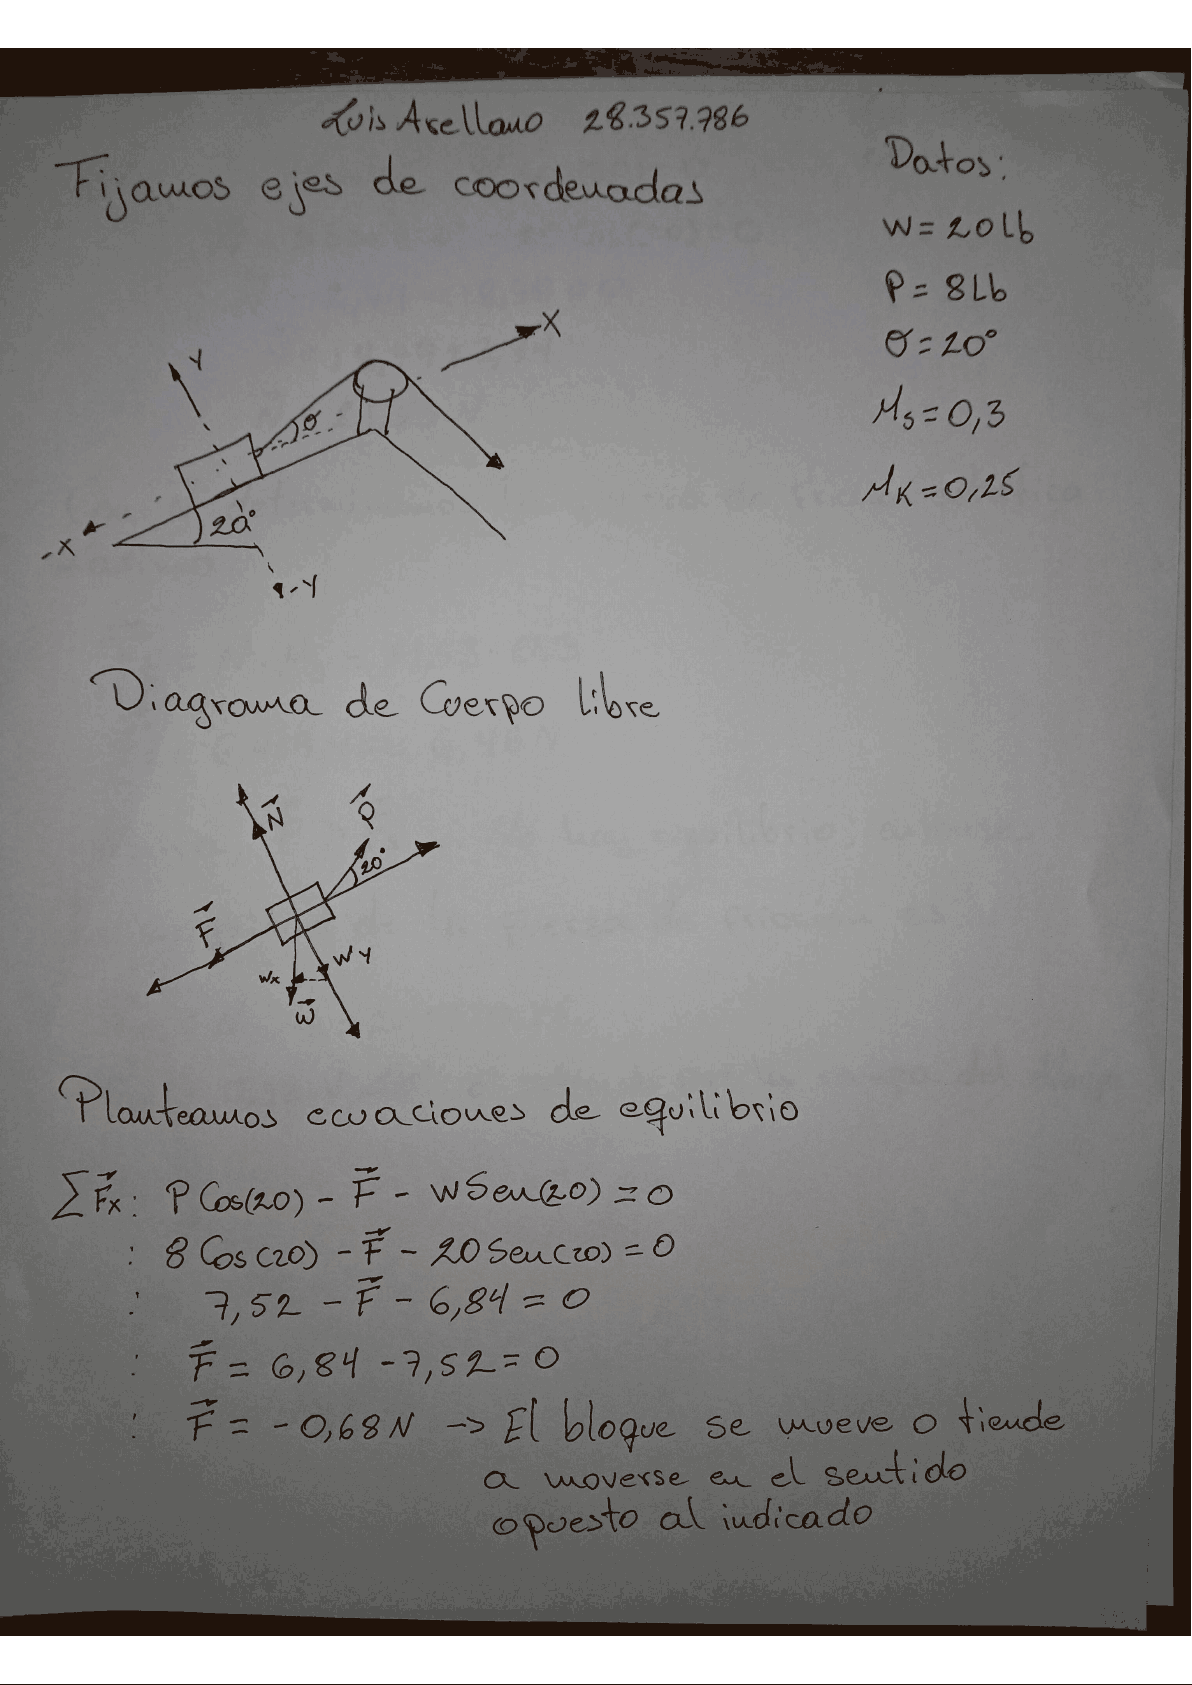 Luis Arellano 28.357.786
Fijamos ejes de coordenadas
Datos:
W = 20 Lb
P = 8 Lb
θ = 20°
μs = 0,3
μK = 0,25
Y
X
θ
20°
-X
-Y
Diagrama de Cuerpo libre
N
P
20°
F
Wy
Wx
W
Planteamos ecuaciones de equilibrio
∑Fx: P Cos(20) - F - W Sen(20) = 0
: 8 Cos(20) - F - 20 Sen(20) = 0
: 7,52 - F - 6,84 = 0
: F = 6,84 - 7,52 = 0
: F = -0,68 N → El bloque se mueve o tiende
a moverse en el sentido
opuesto al indicado